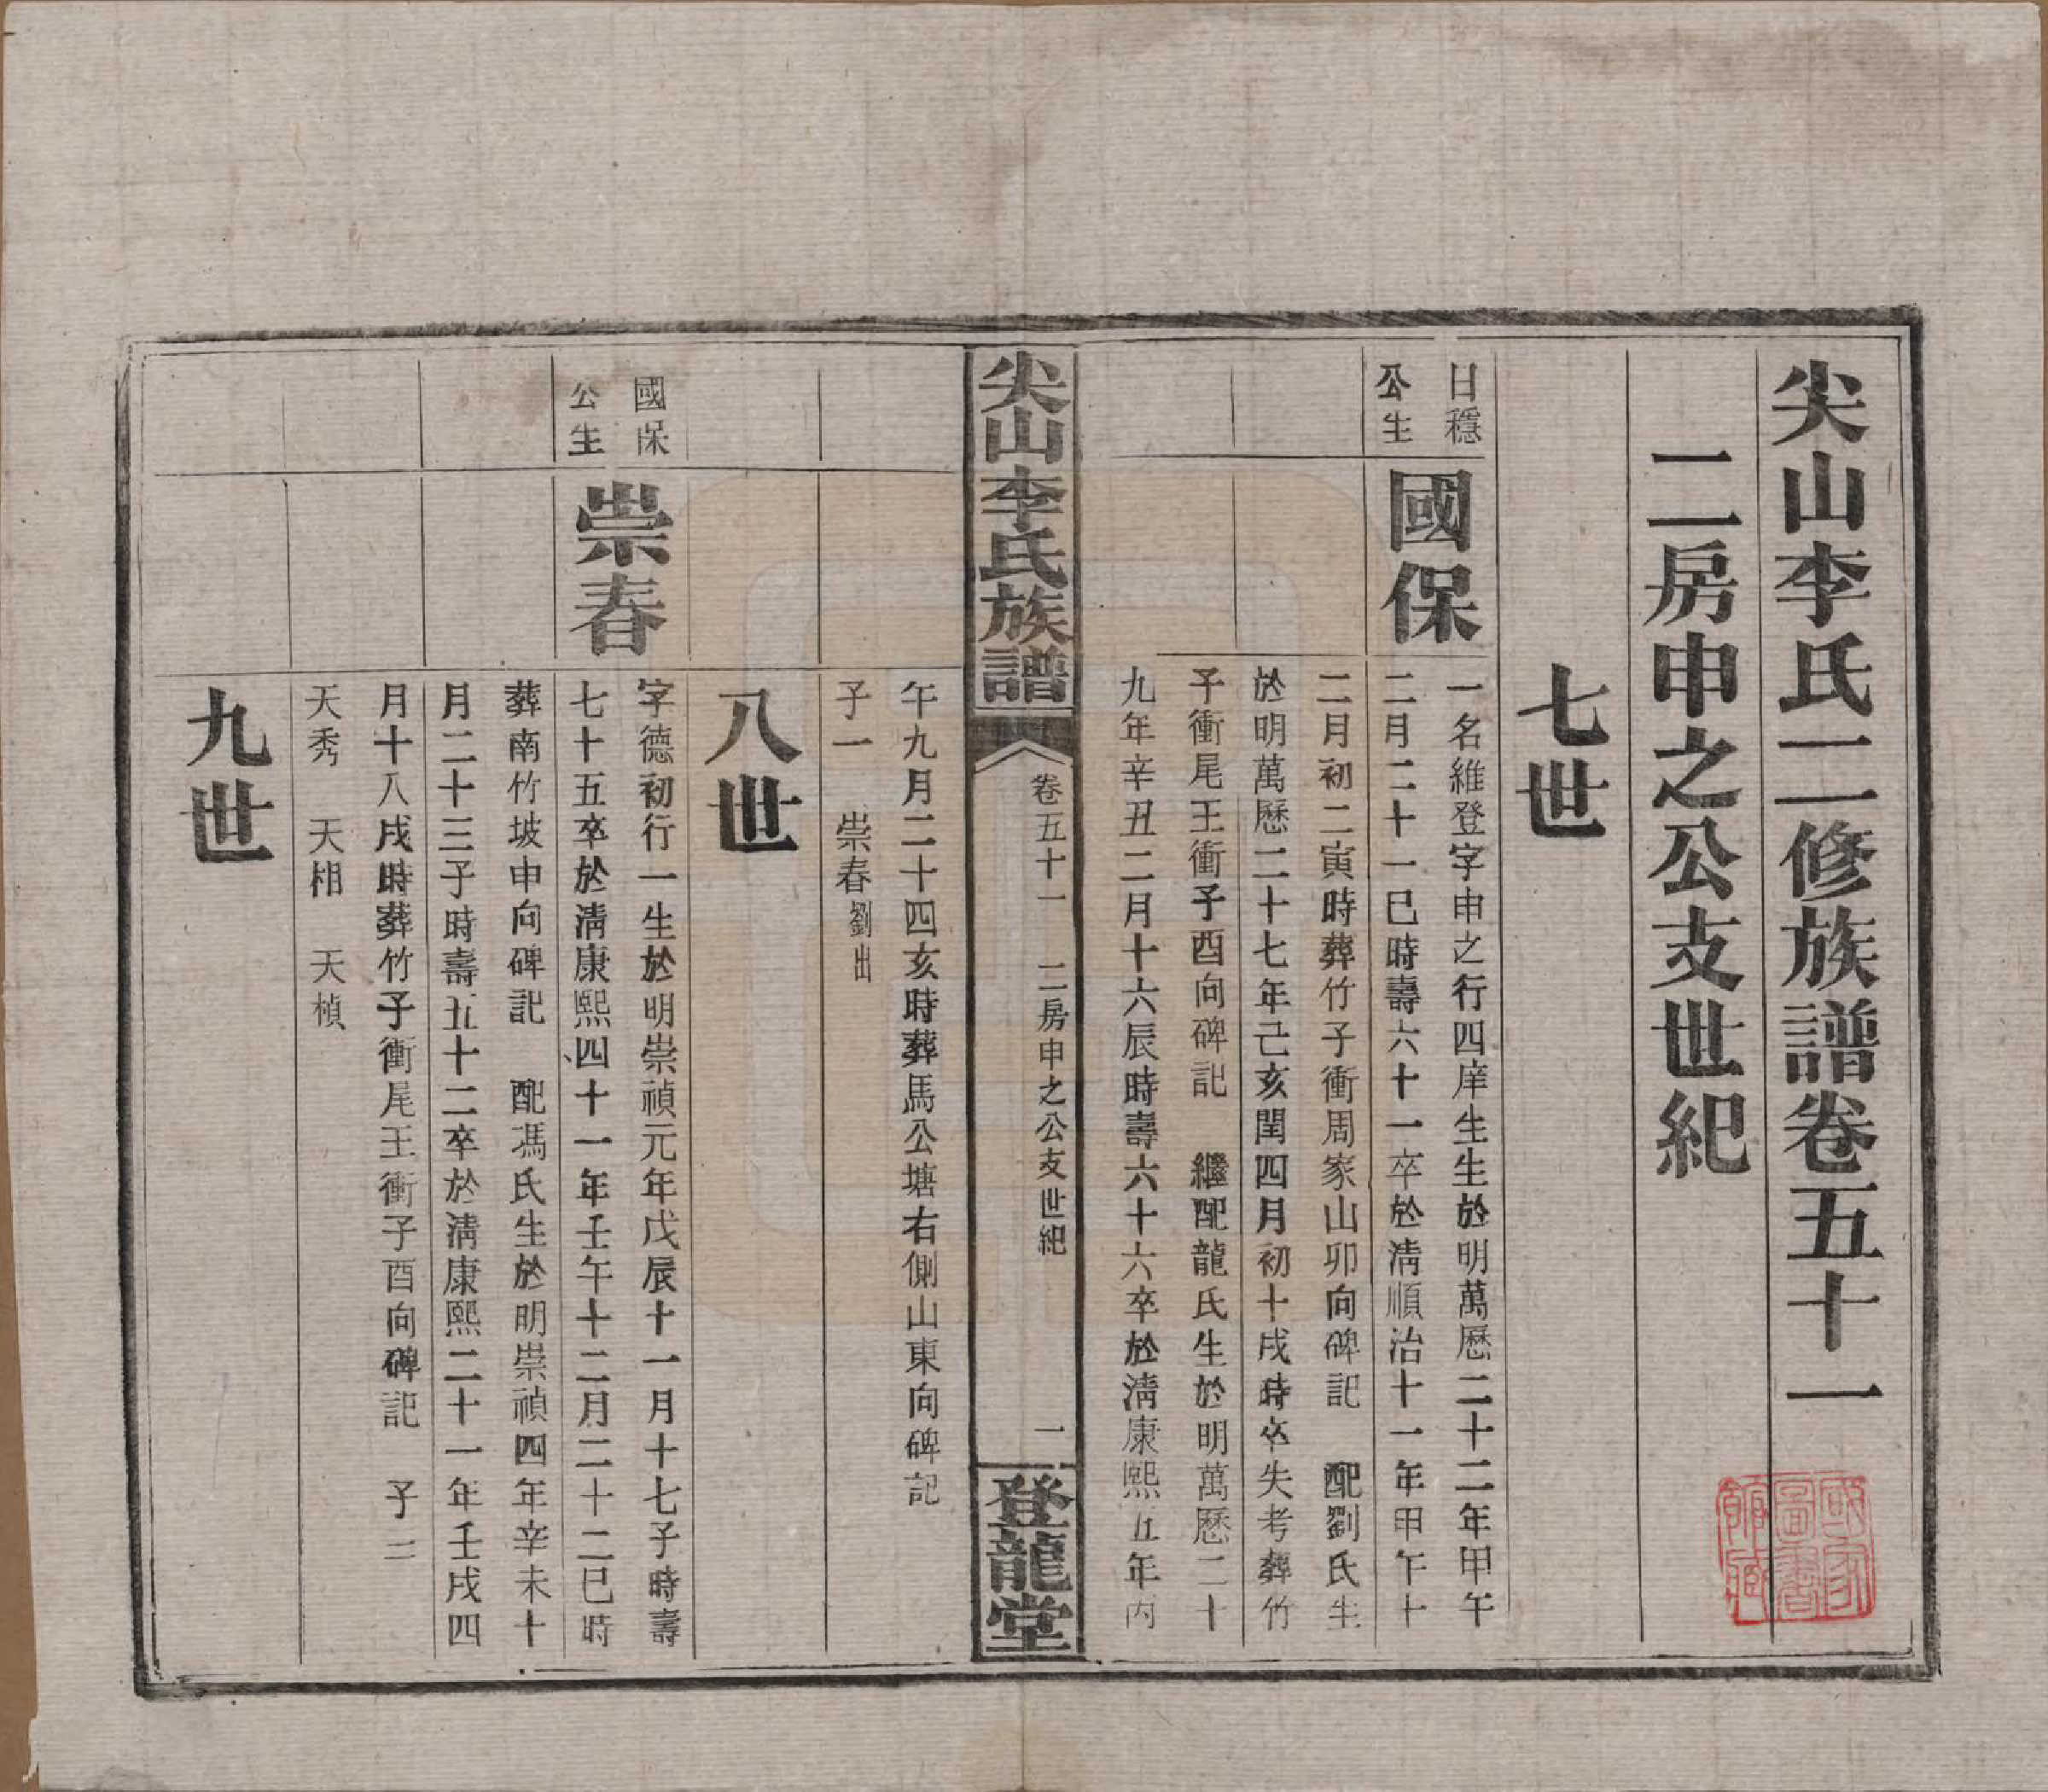 尖山李氏二修族譜卷五十一
二房申之公支世紀
七世
日穩
公生
國保
一名維登字申之行四庠生生於明萬歷二十二年甲午
二月二十一巳時壽六十一卒於清順治十一年甲午十
二月初二寅時葬竹子衝周家山卯向碑記 配劉氏生
於明萬歷二十七年己亥閏四月初十戌時卒失考葬竹
子衝尾王衝子酉向碑記 繼配龍氏生於明萬歷二十
九年辛丑二月十六辰時壽六十六卒於清康熙五年丙
尖山李氏族譜
卷五十一 二房申之公支世紀
一
登龍堂
午九月二十四亥時葬馬公塘右側山東向碑記
子一 崇春劉出
八世
國保
公生
崇春
字德初行一生於明崇禎元年戊辰十一月十七子時壽
七十五卒於清康熙四十一年壬午十二月二十二巳時
葬南竹坡申向碑記 配馮氏生於明崇禎四年辛未十
月二十三子時壽五十二卒於清康熙二十一年壬戌四
月十八戌時葬竹子衝尾王衝子酉向碑記 子三
天秀 天相 天楨
九世
國家
圖書
館藏